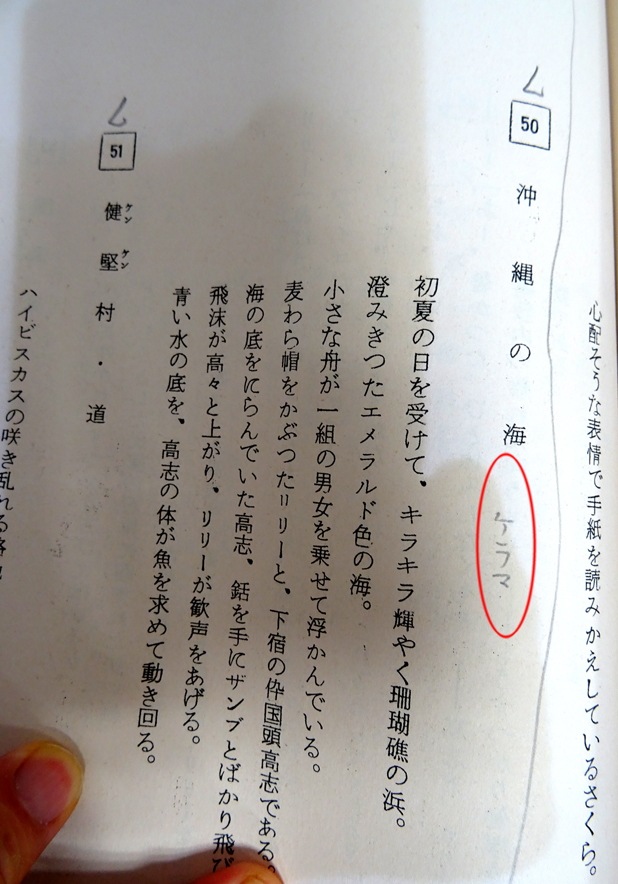 心配そうな表情で手紙を読みかえしているさくら。
50 沖縄の海 ケラマ
初夏の日を受けて、キラキラ輝やく珊瑚礁の浜。
澄みきつたエメラルド色の海。
小さな舟が一組の男女を乗せて浮かんでいる。
麦わら帽をかぶつたリリーと、下宿の伜国頭高志である。
海の底をにらんでいた高志、銛を手にザンブとばかり飛び
飛沫が高々と上がり、リリーが歓声をあげる。
青い水の底を、高志の体が魚を求めて動き回る。
51 健堅村・道
ケン ケン
ハイビスカスの咲き乱れる